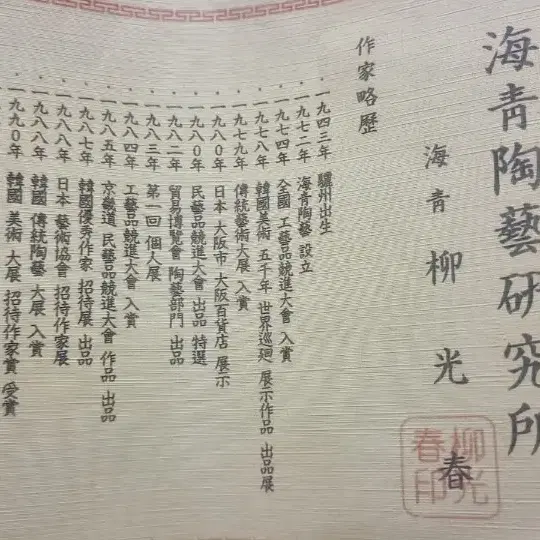 海青陶藝研究所
海青 柳光春
柳光春印
作家略歷
・一九四三年 驪州出生
・一九七二年 海青陶藝 設立
・一九七四年 全國 工藝品競進大會 入賞
・一九七八年 韓國美術 五千年 世界巡廻 展示作品 出品展
・一九七九年 傳統藝術大展 入賞
・一九八〇年 日本 大阪市 大阪百貨店 展示
・一九八〇年 民藝品競進大會 出品 特選
・一九八二年 貿易博覽會 陶藝部門 出品
・一九八三年 第一回 個人展
・一九八四年 工藝品競進大會 入賞
・一九八五年 京畿道 民藝品競進大會 作品 出品
・一九八七年 韓國優秀作家 招待展 出品
・一九八八年 日本 藝術協會 招待作家展
・一九八八年 韓國 傳統陶藝 大展 入賞
・一九九〇年 韓國 美術 大展 招待作家賞 受賞